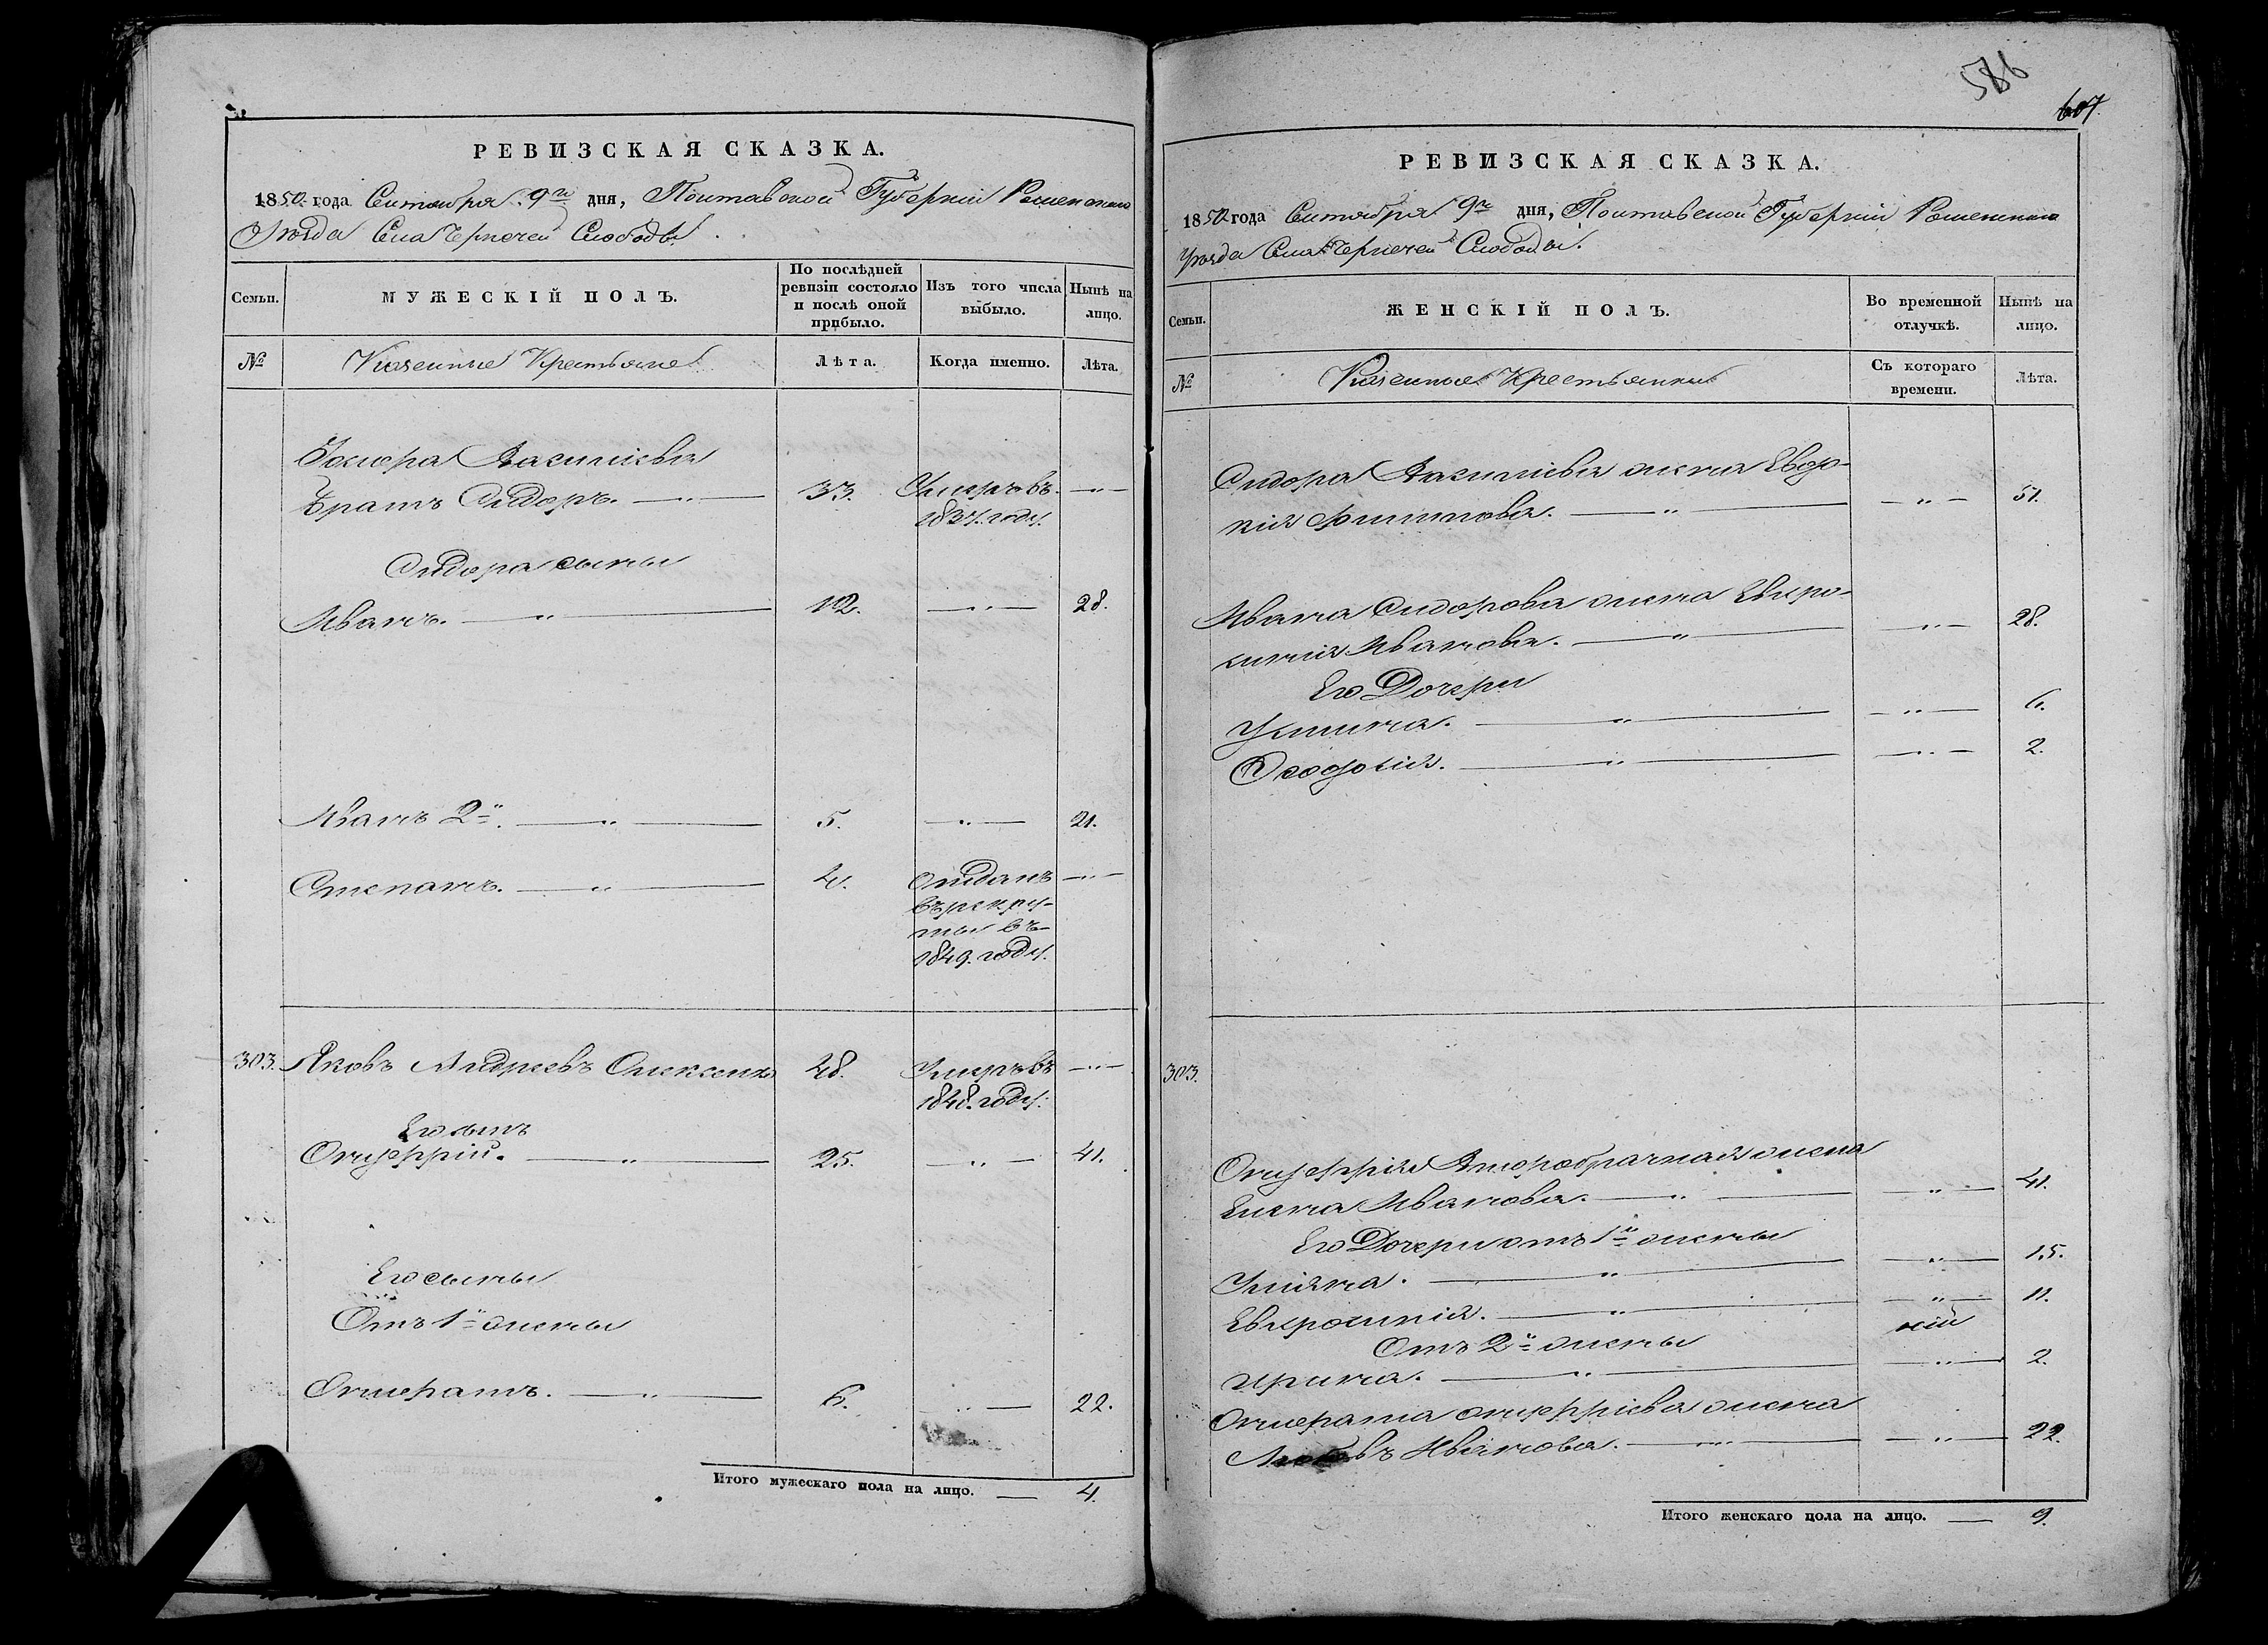 РЕВИЗСКАЯ СКАЗКА.
1850 года Сентября 9го дня, Полтавской Губерніи Роменскаго
Уѣзда Села Чернечей Слободы.
Семьи.
МУЖЕСКІЙ ПОЛЪ.
По послѣдней ревизіи состояло и послѣ оной прибыло.
Изъ того числа выбыло.
Нынѣ на лицо.
№
Казенные Крестьяне
Лѣта.
Когда именно.
Лѣта.
Василіева
Братъ Сидоръ. — 33. Умеръ въ —
1837. году.
Сидора сыны
Иванъ. — 12. — 28.
Иванъ 2й. — 5. — 21.
Степанъ. — 4. отданъ —
въ рекру-
ты въ
1849. году.
303. Яковъ Андреевъ Олексенко 48. Умеръ въ —
1848. году.
Его сынъ
Онуфрій. — 25. — 41.
Его сыны
Отъ 1й жены
— 6. — 22.
Итого мужескаго пола на лицо. — 4.
586
607
РЕВИЗСКАЯ СКАЗКА.
1850 года Сентября 9го дня, Полтавской Губерніи Роменскаго
Уѣзда Села Чернечей Слободы.
Семьи.
ЖЕНСКІЙ ПОЛЪ.
Во временной отлучкѣ.
Нынѣ на лицо.
№
Казенные Крестьянки
Съ котораго времени.
Лѣта.
Сидора Василіева жена Евдо-
кія Филипова. — — 51.
Ивана Сидорова жена Ефро-
синія Иванова. — — 28.
Его Дочери
Улита. — — 6.
Феодосія. — — 2.
303.
Онуфрія Второбрачная жена
Елена Иванова. — — 41.
Его Дочери отъ 1й жены
Уліяна. — — 15.
Евфросинія. — — 11.
Отъ 2й жены
Ирина. — — 2.
Онуфріева жена
Любовъ Иванова. — — 22.
Итого женскаго пола на лицо. — 9.